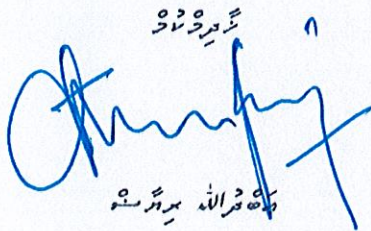 ޚާދިމްކުމް
ޢަބްދުﷲ ރިޔާޟް